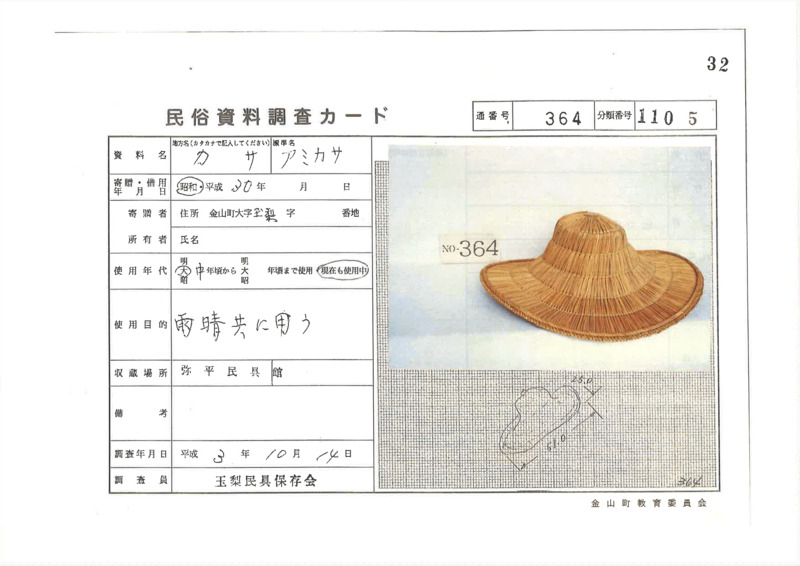 32
民俗資料調査カード
通番号 364 分類番号 110 5
資料名 地方名(カタカナで記入してください) カサ 標準名 アミカサ
寄贈・借用年月日 昭和・平成 30年 月 日
寄贈者 住所 金山町大字玉梨 字 番地
所有者 氏名
使用年代 明大昭 中年頃から 明大昭 年頃まで使用・現在も使用中
使用目的 雨晴共に用う
収蔵場所 弥平民具館
備考
調査年月日 平成 3年 10月 14日
調査員 玉梨民具保存会
NO-364
25.0
51.0
364
金山町教育委員会